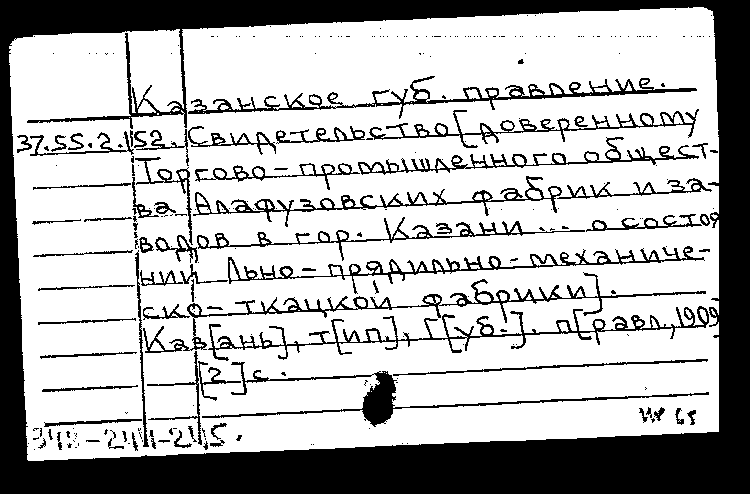 Казанское губ. правление.
37.55.2.152. Свидетельство [доверенному
Торгово-промышленного общест-
ва Алафузовских фабрик и за-
водов в гор. Казани ... о состоя
нии Льно-прядильно-механиче-
ско-ткацкой фабрики].
Каз[ань], т[ип.], Г[уб.]. п[равл., 1909]
[2] с.
348-244-245.